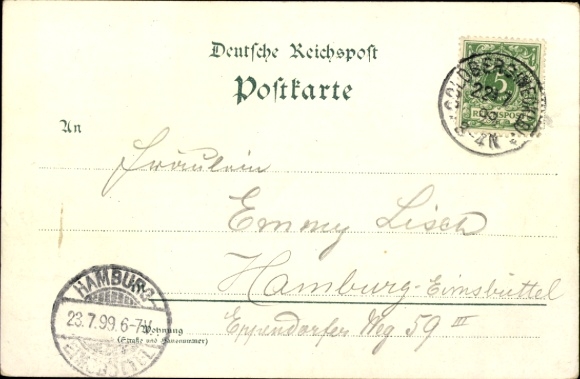 Deutsche Reichspost
Postkarte
5
REICHSPOST
GOLDBERG (MECKLB)
22.7
99
3-4N
An
Fräulein
Emmy Lisch
Hamburg-Eimsbüttel
Eppendorfer Weg 59 III
Wohnung
(Straße und Hausnummer)
HAMBURG
23.7.99.6-7V.